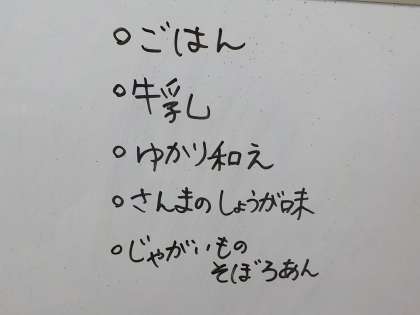 ○ごはん
○牛乳
○ゆかり和え
○さんまのしょうが味
○じゃがいもの
そぼろあん